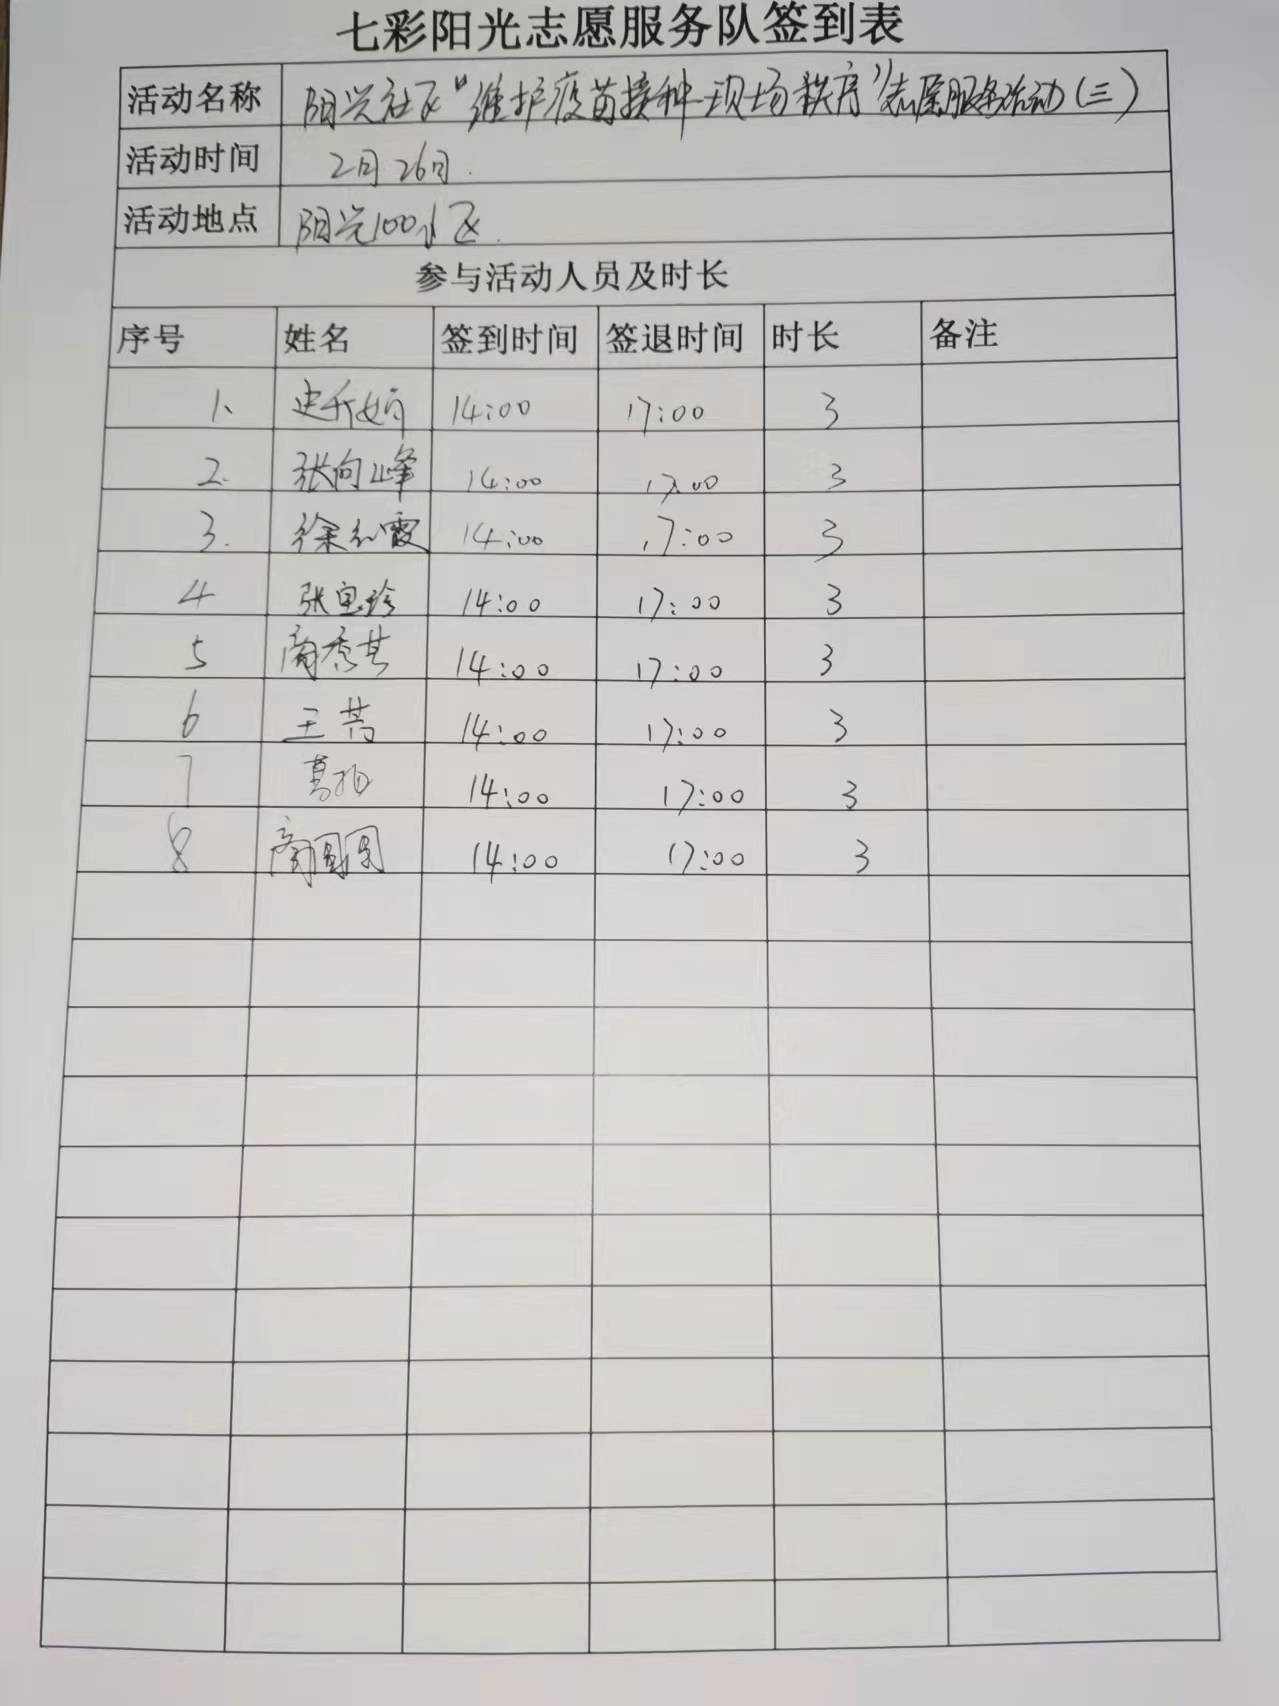 七彩阳光志愿服务队签到表
活动名称 阳光社区“维护疫苗接种现场秩序”志愿服务活动(三)
活动时间 2月26日.
活动地点 阳光100小区.
参与活动人员及时长
序号 姓名 签到时间 签退时间 时长 备注
1、 14:00 17:00 3
2. 张向峰 14:00 17:00 3
3. 徐 霞 14:00 17:00 3
4 张宝珍 14:00 17:00 3
5 商秀其 14:00 17:00 3
6 王 14:00 17:00 3
7 葛 14:00 17:00 3
8 商圆圆 14:00 17:00 3